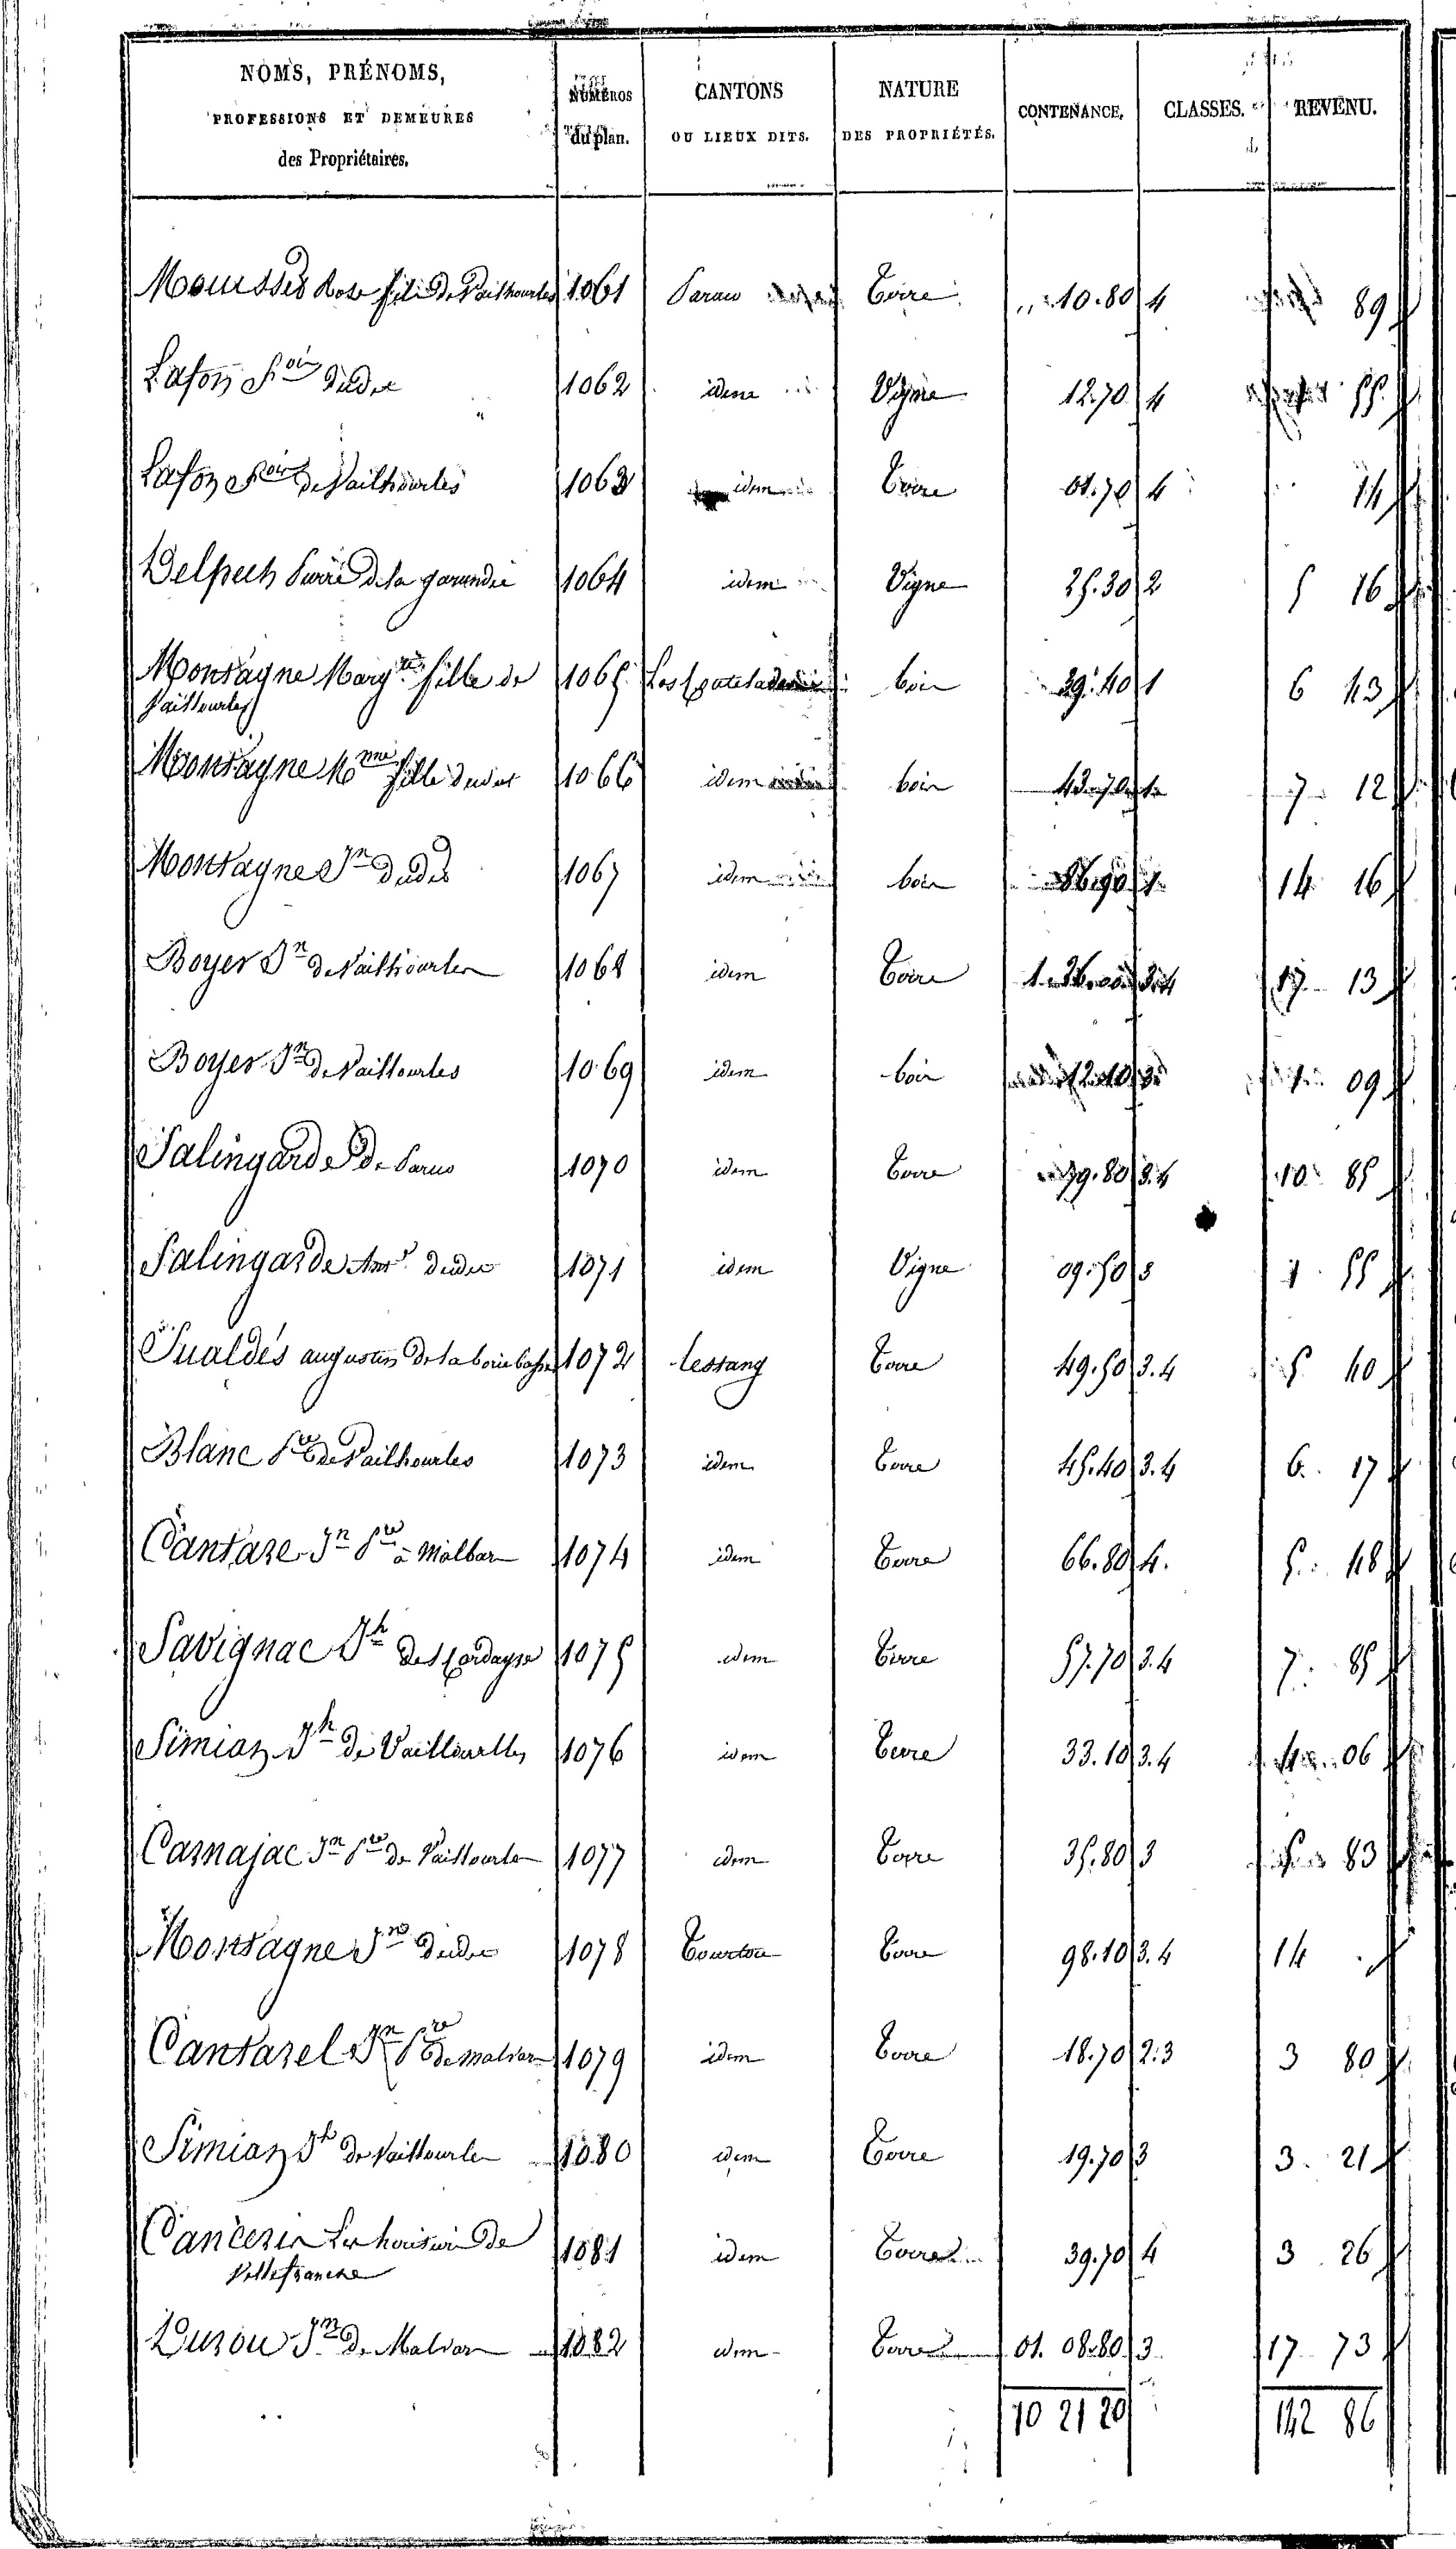 NOMS, PRÉNOMS, PROFESSIONS ET DEMEURES des Propriétaires. NUMÉROS du plan. CANTONS OU LIEUX DITS. NATURE DES PROPRIÉTÉS. CONTENANCE. CLASSES. REVENU.
1061 Terre 10.80 4 89
Lafon dudit 1062 idem Vigne 12.70 4 55
Lafon de Vailhourles 1063 idem Terre 01.70 4 14
Delpech de la 1064 idem Vigne 25.30 2 5 16
Montagne Marg.te fille de 1065 bois 39.40 1 6 43
Vailhourles
Montagne fille dudit 1066 idem bois 43.70 1 7 12
Montagne Jn dudit 1067 idem bois 86.90 1 14 16
Boyer Jn de Vailhourles 1068 idem Terre 3.4 17 13
Boyer Jn de Vailhourles 1069 idem bois 3 09
Salingarde de 1070 idem Terre 79.80 3.4 10 85
Salingarde Ant. dudit 1071 idem Vigne 09.50 3 1 55
augustin de la borie basse 1072 Lestang Terre 49.50 3.4 5 40
Blanc de Vailhourles 1073 idem Terre 45.40 3.4 6 17
Jn Pre à Malbar 1074 idem Terre 66.80 4. 5 48
Savignac Jh 1075 idem Terre 57.70 3.4 7 85
Simian Jh de Vailhourlles 1076 idem Terre 33.10 3.4 4 06
Jn Pre de Vailhourles 1077 idem Terre 35.80 3 5 83
Montagne Jn dudit 1078 Terre 98.10 3.4 14
Cantarel Jn Pre de 1079 idem Terre 18.70 2.3 3 80
Simian Jh de Vailhourles 1080 idem Terre 19.70 3 3 21
de 1081 idem Terre 39.70 4 3 26
Villefranche
Jn de Malvar 1082 idem Terre 01. 08.80 3 17 73
10 21 20 142 86